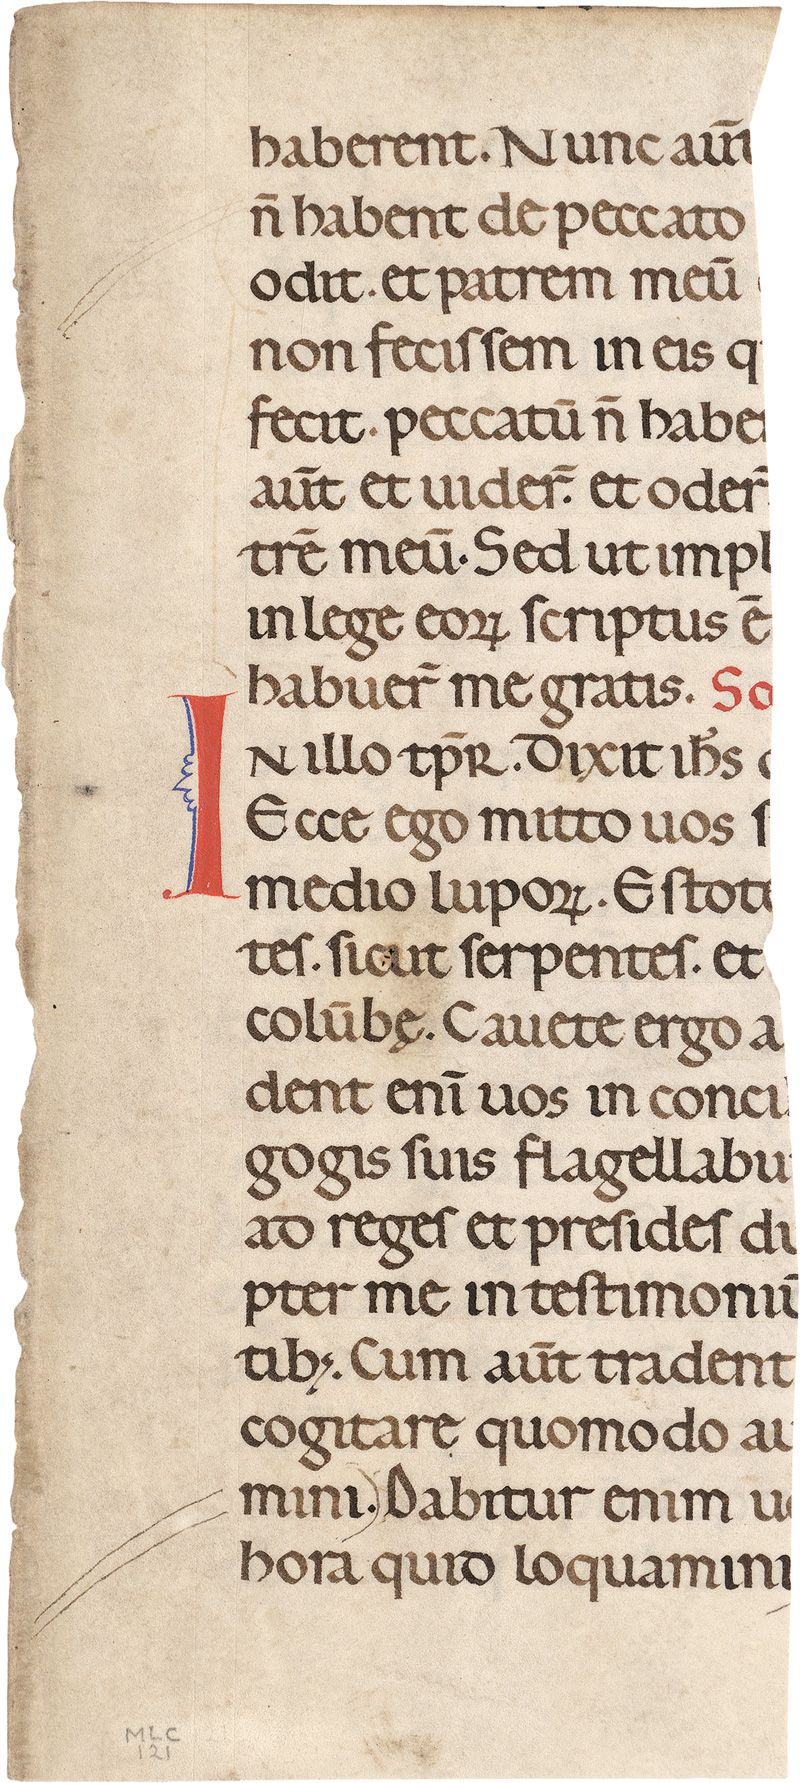 haberent. Nunc aūt
n̄ habent de peccato
odit. et patrem meū
non feciſſem in eis q
fecit. peccatū n̄ habe
aūt et uider̄. et oder̄
trē meū. Sed ut impl
in lege eoꝝ ſcriptus ē
habuer̄ me gratis. Sc
IN illo tp̄R. Dixit ih̄s
Ecce ego mitto uos ſ
medio lupoꝝ. Eſtote
teſ. ſicut ſerpenteſ. et
colūbę. Cauete ergo a
dent enī uos in conci
gogis ſuis flagellabu
ad regeſ et preſideſ du
pter me in teſtimoniū
tibꝫ. Cum aūt tradent
cogitare quomodo au
mini. Dabitur enim u
hora quid loquamini
MLC
121